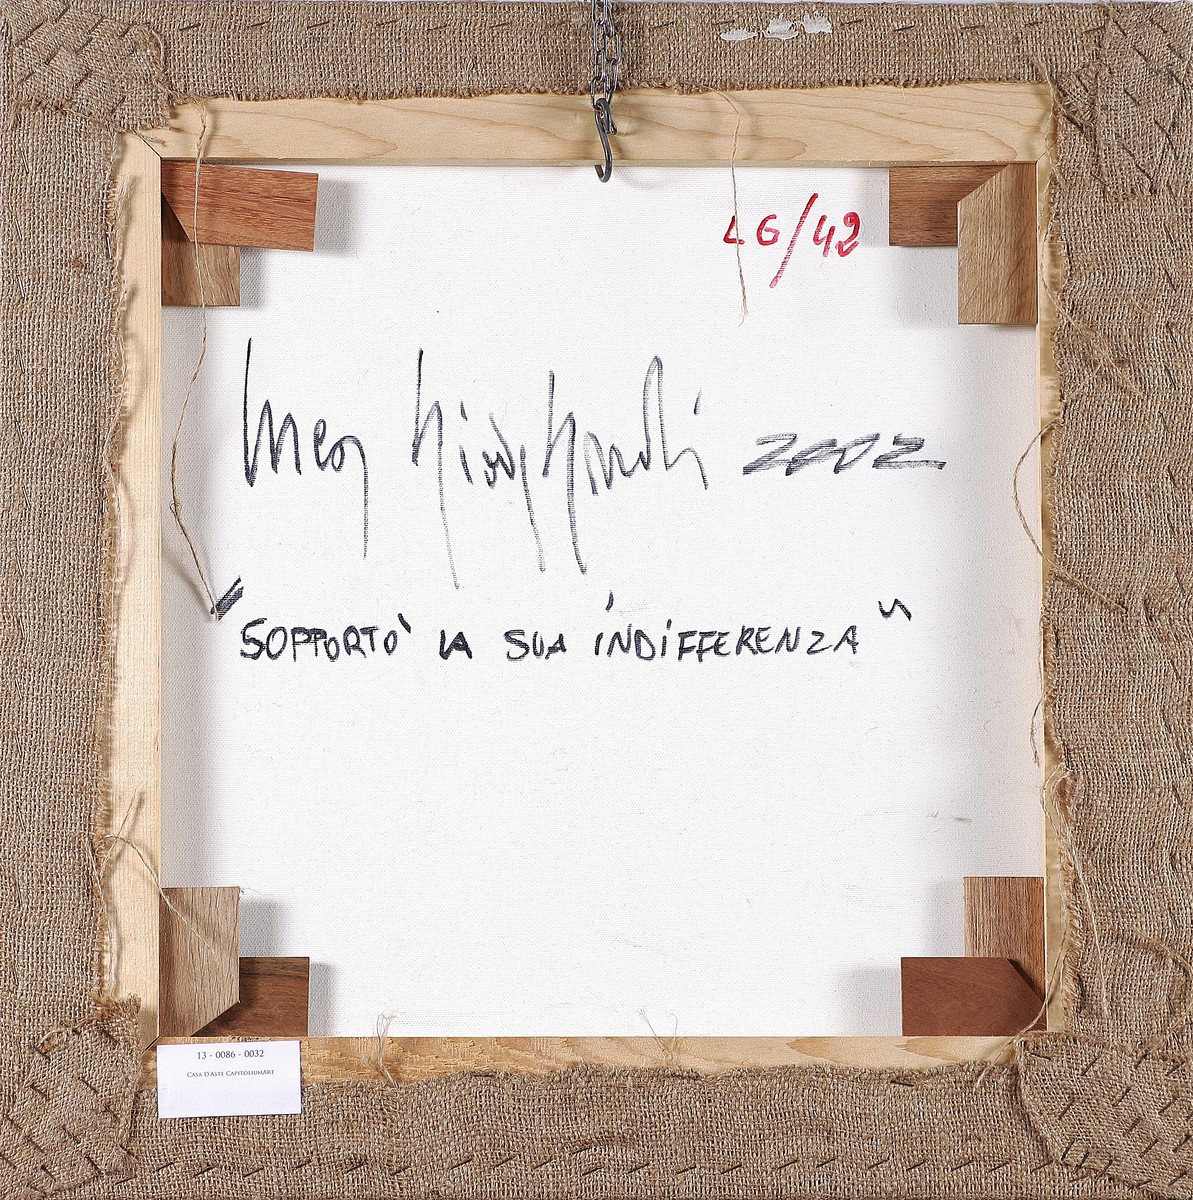 LG/42
2002
"SOPPORTO' LA SUA INDIFFERENZA"
13 - 0086 - 0032
CASA D'ASTE CAPITOLIUMART